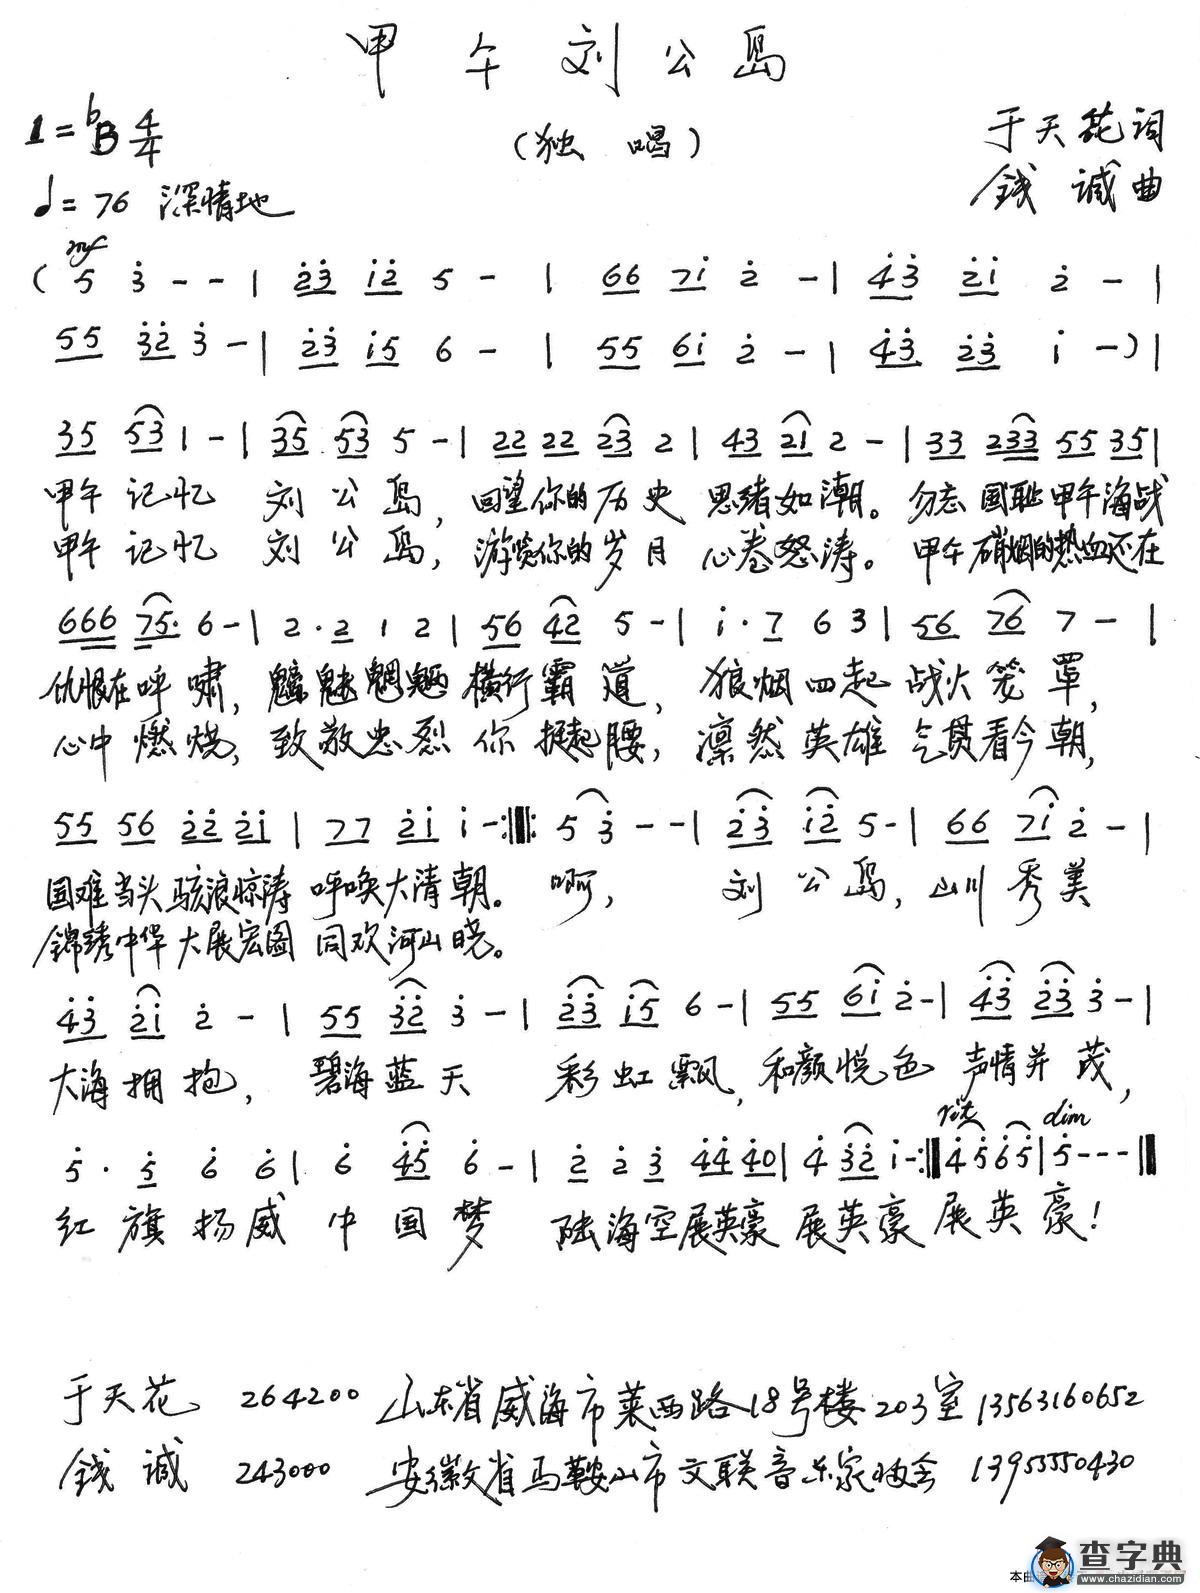 甲午刘公岛
1=♭B 4/4
(独 唱)
于天花词
♩=76 深情地
钱 诚曲
mf
( 5 3̇ - - | 2̇3̇ 1̇2̇ 5 - | 66 71̇ 2̇ - | 4̇3̇ 2̇1̇ 2̇ - |
55 3̇2̇ 3̇ - | 2̇3̇ 1̇5 6 - | 55 61̇ 2̇ - | 4̇3̇ 2̇3̇ 1̇ - ) |
35 53 1 - | 35 53 5 - | 22 22 23 2 | 43 21 2 - | 33 233 55 35 |
甲午 记忆 刘 公 岛, 回望你的 历 史 思绪如潮。 勿忘 国耻 甲午海战
甲午 记忆 刘 公 岛, 游览你的 岁 月 心卷怒涛。 甲午 硝烟的热血还在
666 75· 6 - | 2 · 2 1 2 | 56 42 5 - | 1̇ · 7 6 3 | 56 76 7 - |
仇恨在呼 啸, 魑魅魍魉 横行霸 道, 狼烟四起 战火笼 罩,
心中 燃烧, 致敬忠烈 你 挺起腰, 凛然英雄 气贯看今朝,
55 56 2̇2̇ 2̇1̇ | 77 2̇1̇ 1̇ - :‖: 5 3̇ - - | 2̇3̇ 1̇2̇ 5 - | 66 71̇ 2̇ - |
国难当头 骇浪惊涛 呼唤大清朝。 啊, 刘 公 岛, 山川 秀美
锦绣中华 大展宏图 同欢河山晓。
4̇3̇ 2̇1̇ 2̇ - | 55 3̇2̇ 3̇ - | 2̇3̇ 1̇5 6 - | 55 61̇ 2̇ - | 4̇3̇ 2̇3̇ 3̇ - |
大海 拥 抱, 碧海 蓝 天 彩 虹 飘, 和颜 悦色 声情并 茂,
rit dim
5̇ · 5̇ 6̇ 6̇ | 6̇ 4̇5̇ 6̇ - | 2̇ 2̇ 3̇ 4̇4̇ 4̇0 | 4̇ 3̇2̇ 1̇ - :‖ 4̇ 5̇ 6̇ 5̇ | 5̇ - - - ‖
红 旗 扬 威 中 国 梦 陆 海 空 展英豪 展英豪 展 英 豪!
于天花 264200 山东省威海市莱西路18号楼203室 13563160652
钱 诚 243000 安徽省马鞍山市文联音乐家协会 13955550430
查字典
www.chazidian.com